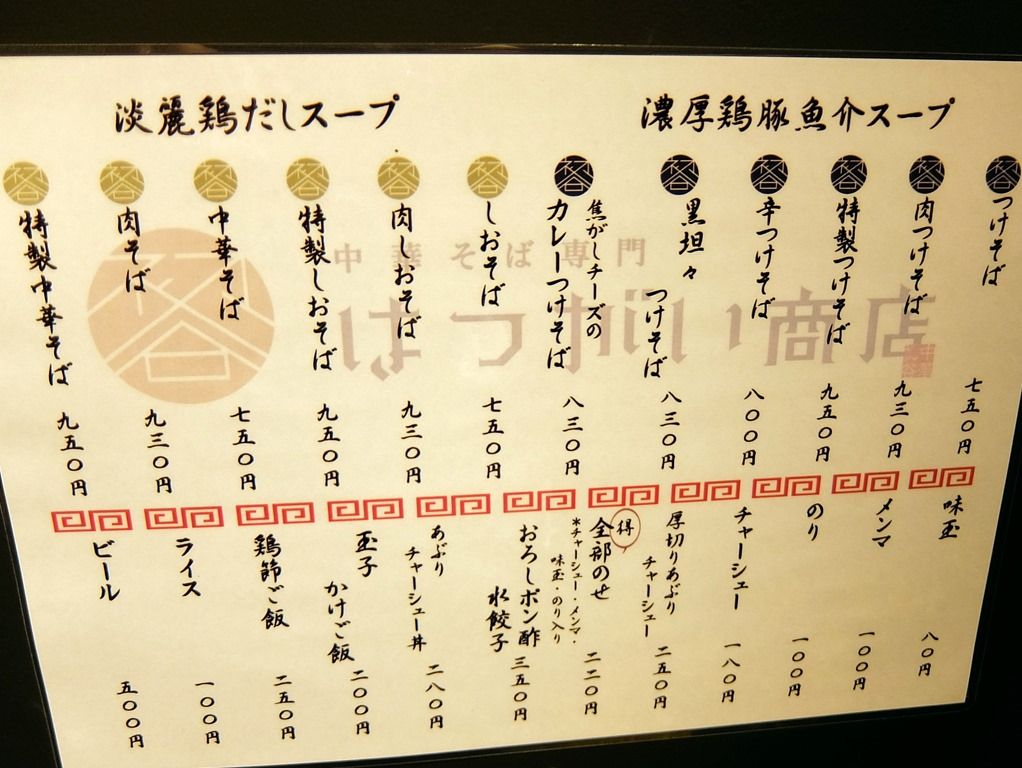 濃厚鶏豚魚介スープ
つけそば 七五〇円
肉つけそば 九三〇円
特製つけそば 九五〇円
辛つけそば 八〇〇円
黒坦々
つけそば 八三〇円
焦がしチーズの
カレーつけそば 八三〇円
淡麗鶏だしスープ
しおそば 七五〇円
肉しおそば 九三〇円
特製しおそば 九五〇円
中華そば 七五〇円
肉そば 九三〇円
特製中華そば 九五〇円
中華そば専門
商店
味玉 八〇円
メンマ 一〇〇円
のり 一〇〇円
チャーシュー 一八〇円
厚切りあぶり
チャーシュー 二五〇円
得
全部のせ 二二〇円
*チャーシュー・メンマ・
味玉・のり入り
おろしポン酢
水餃子 三五〇円
あぶり
チャーシュー丼 二八〇円
玉子
かけご飯 二〇〇円
鶏節ご飯 二五〇円
ライス 一〇〇円
ビール 五〇〇円